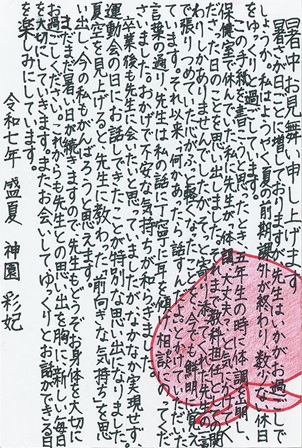 暑中お見舞い申し上げます
暑さが日ごとに増しておりますが、先生はいかがお過ごしで
しょうか。私はようやく夏の前期課外が終わり、数少ない休日
をゆっくり過ごしています。
この手紙を書こうと思ったとき、五年生の時に体調を崩し、
保健室で休んでいた私に先生が「体調大丈夫？」と気にかけて
くださった日のことを思い出しました。それまで教科担任としての関
わりしかありませんでしたが、そっと寄り添ってくれた先生の
で張りつめていた心がふっと軽くなったことを今でも鮮明に覚え
ています。それ以来「何かあったら話すんだよ」「いつでも相談にのってくだ
言葉の通り、先生は私の話に丁寧に耳を傾け、相談にのってくだ
さいました。おかげで不安な気持ちが和らぎました。
卒業後も先生に会いたいと思っていましたがなかなか実現せず、
運動会の日にお話しできたことが特別な思い出になりました。
夏空を見上げると、先生に教わった「前向きな気持ち」を思
い出し、今の私もがんばろうと思えます。
まだまだ暑い日が続きますので、先生もどうぞお身体を大切に
お過ごしください。これからも先生との思い出を胸に、新しい毎日
を大切にしていきます。またお会いして、ゆっくりとお話ができる日
を楽しみにしています。
令和七年 盛夏 神園 彩妃